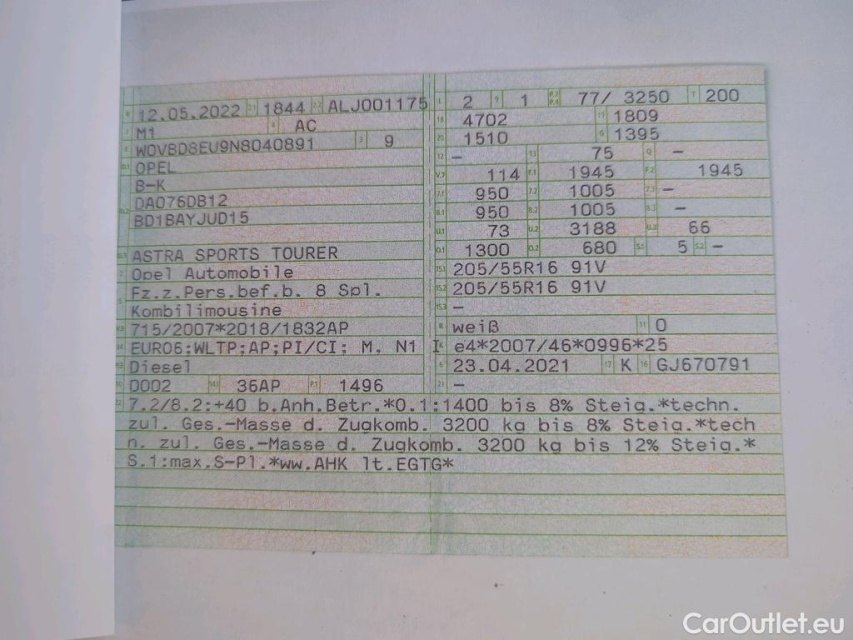 12.05.2022 1844 ALJ001175 2 1 77/ 3250 200
M1 AC 4702 1809
W0VBD8EU9N8040891 9 1510 1395
OPEL – 75 –
B-K 114 1945 1945
DA076DB12 950 1005 –
BD1BAYJUD15 950 1005 –
73 3188 66
ASTRA SPORTS TOURER 1300 680 5 –
Opel Automobile 205/55R16 91V
Fz.z.Pers.bef.b. 8 Spl. 205/55R16 91V
Kombilimousine –
715/2007*2018/1832AP weiß 0
EURO6;WLTP;AP;PI/CI; M, N1 I e4*2007/46*0996*25
Diesel 23.04.2021 K GJ670791
0002 36AP 1496 –
7.2/8.2:+40 b.Anh.Betr.*O.1:1400 bis 8% Steig.*techn.
zul. Ges.-Masse d. Zugkomb. 3200 kg bis 8% Steig.*tech
n. zul. Ges.-Masse d. Zugkomb. 3200 kg bis 12% Steig.*
S.1:max.S-Pl.*ww.AHK lt.EGTG*
CarOutlet.eu